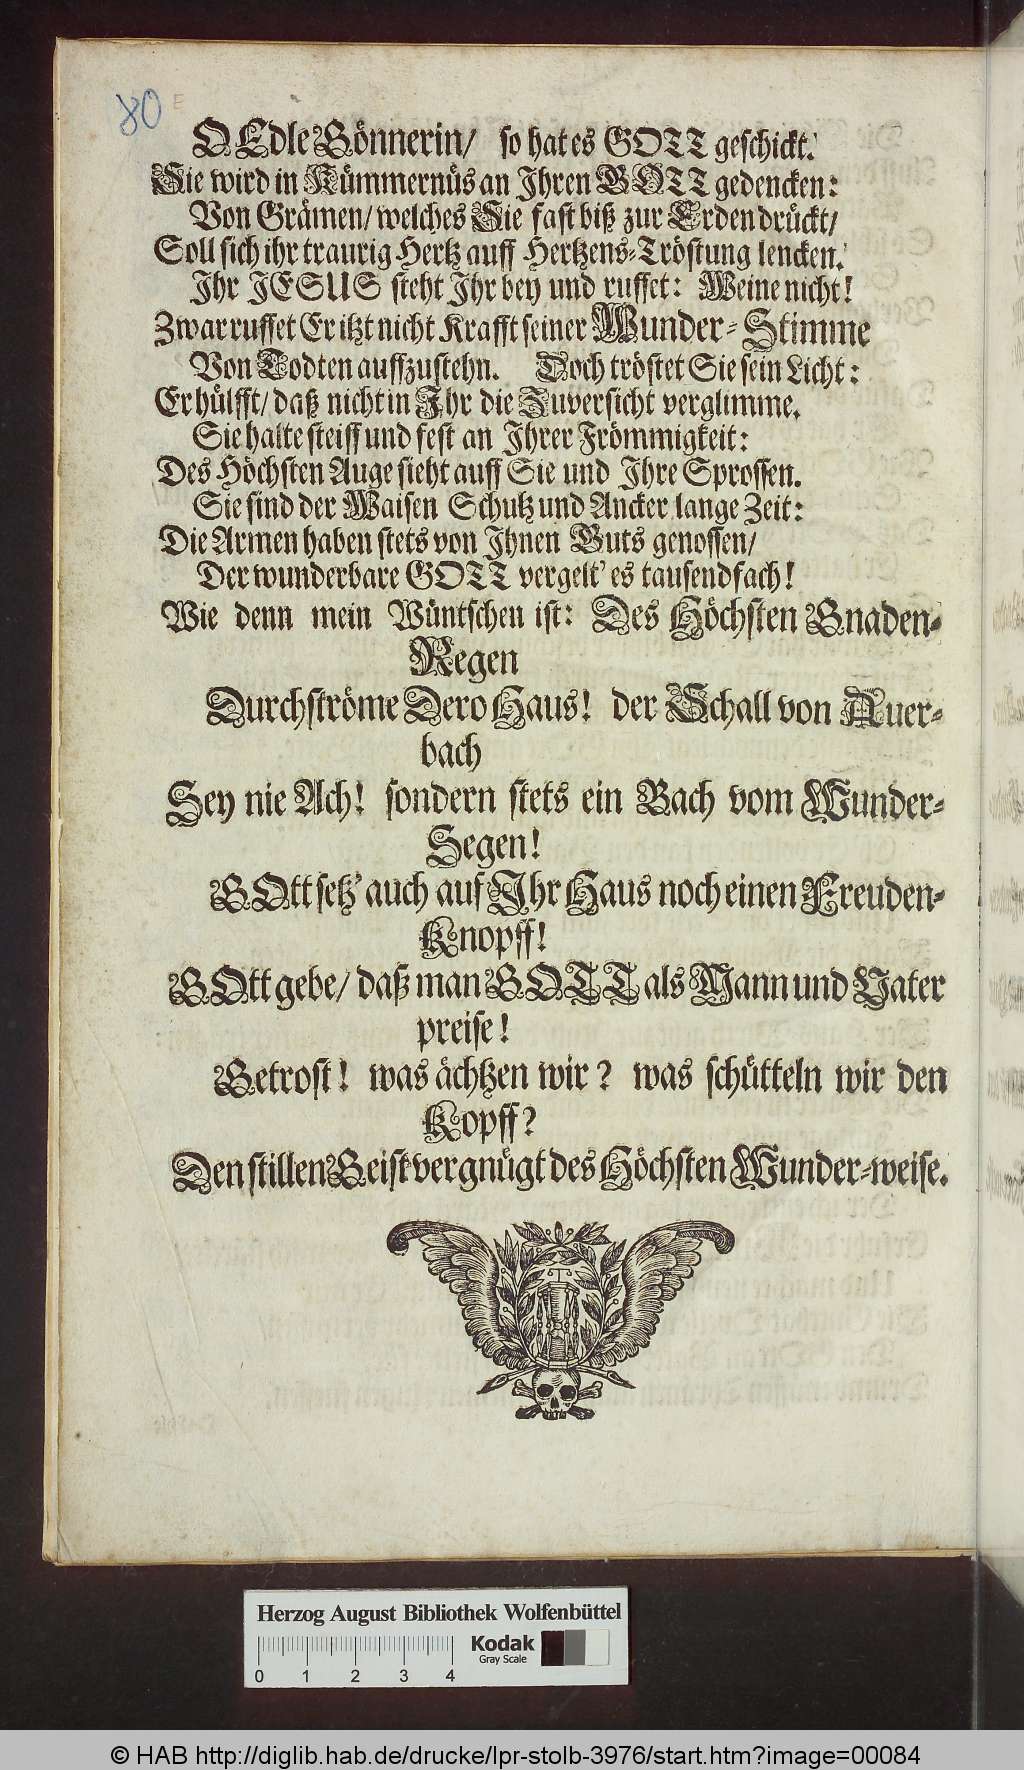 80
O Edle Gönnerin/ so hat es GOTT geschickt.
Sie wird in Kümmernüs an Ihren GOTT gedencken:
Von Grämen/ welches Sie fast biß zur Erden drückt/
Soll sich ihr traurig Hertz auff Hertzens-Tröstung lencken.
Ihr JESUS steht Ihr bey und ruffet: Weine nicht!
Zwar ruffet Er itzt nicht Krafft seiner Wunder-Stimme
Von Todten auffzustehn. Doch tröstet Sie sein Licht:
Er hülfft/ daß nicht in Ihr die Zuversicht verglimme.
Sie halte steiff und fest an Ihrer Frömmigkeit:
Des Höchsten Auge sieht auff Sie und Ihre Sprossen.
Sie sind der Waisen Schutz und Ancker lange Zeit:
Die Armen haben stets von Ihnen Guts genossen/
Der wunderbare GOTT vergelt' es tausendfach!
Wie denn mein Wüntschen ist: Des Höchsten Gnaden-
Regen
Durchströme Dero Haus! der Schall von Auer-
bach
Sey nie Ach! sondern stets ein Bach vom Wunder-
Segen!
GOtt setz' auch auf Ihr Haus noch einen Freuden-
Knopff!
GOtt gebe/ daß man GOTT als Mann und Vater
preise!
Getrost! was ächtzen wir? was schütteln wir den
Kopff?
Den stillen Geist vergnügt des Höchsten Wunder-weise.
Herzog August Bibliothek Wolfenbüttel
Kodak
Gray Scale
0 1 2 3 4
© HAB http://diglib.hab.de/drucke/lpr-stolb-3976/start.htm?image=00084